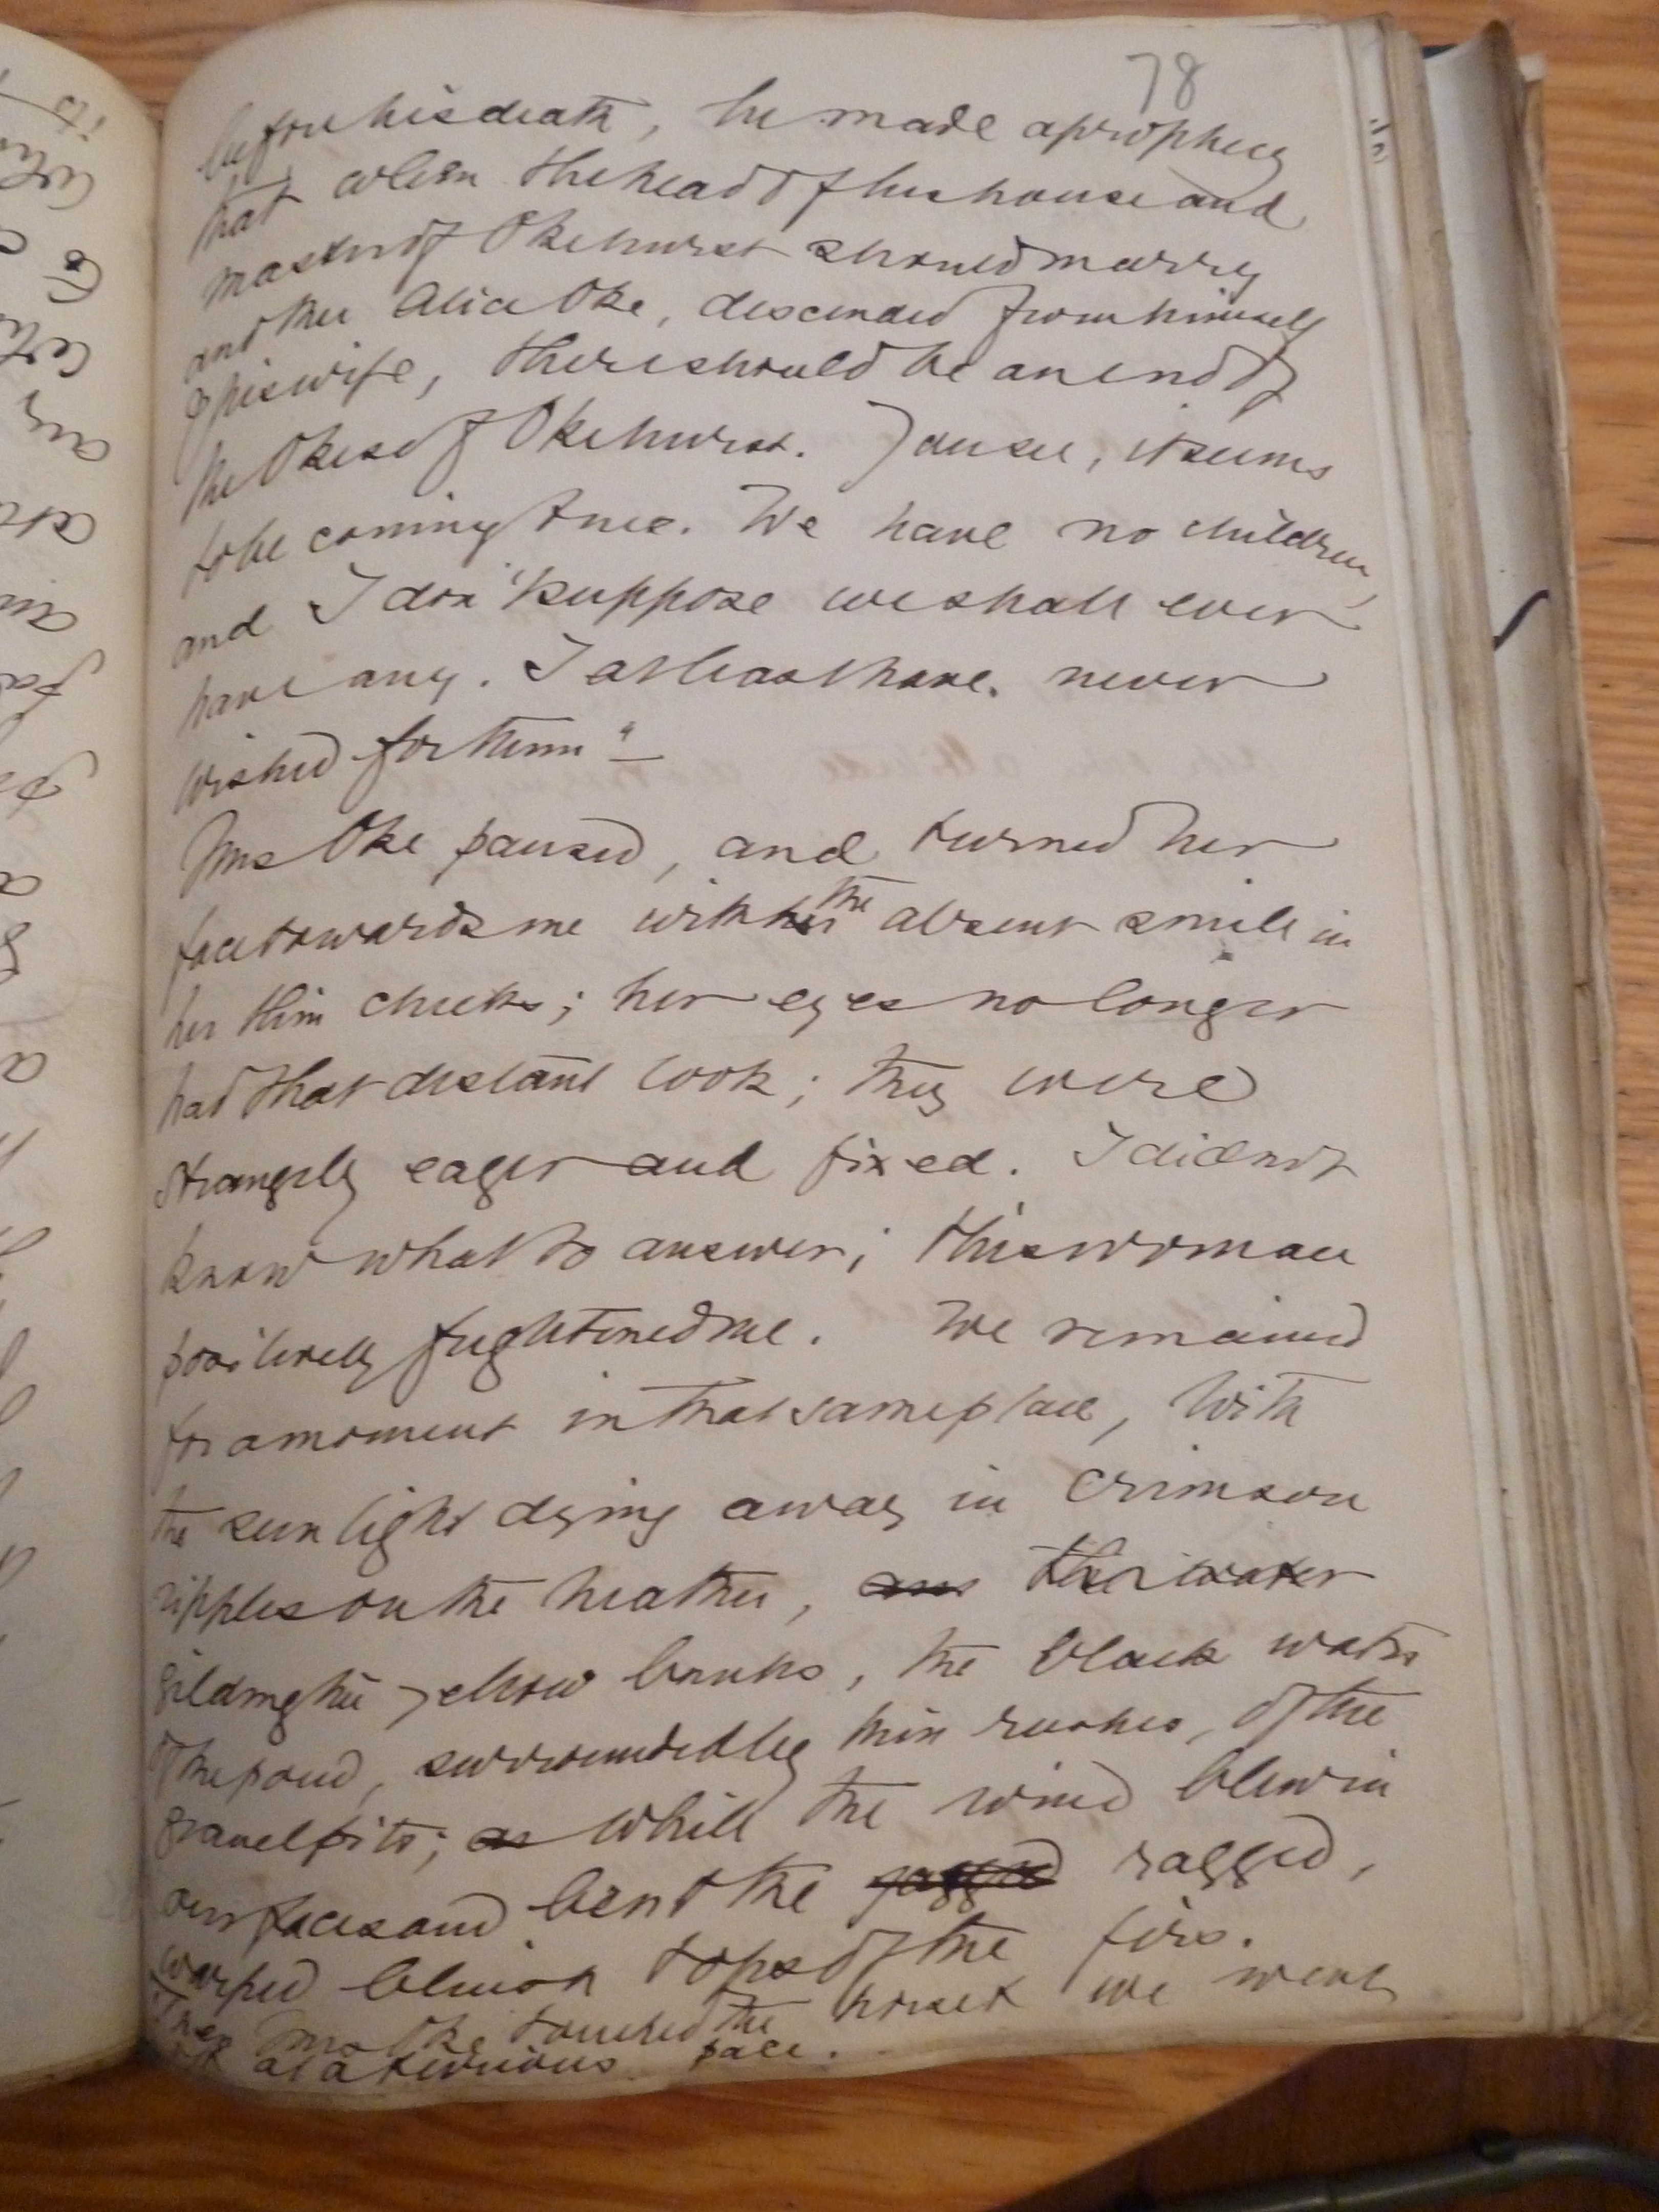 78
before his death, he made a prophecy
that when the head of his house and
master of Okehurst should marry
another Alice Oke, descended from himself
& his wife, there should be an end of
the Okes of Okehurst. You see, it seems
to be coming true. We have no children,
and I don't suppose we shall ever
have any. I at least have never
wished for them"—
Mrs Oke paused, and turned her
face towards me with her the absent smile in
her thin cheeks; her eyes no longer
had that distant look; they were
strangely eager and fixed. I did not
know what to answer; this woman
positively frightened me. We remained
for a moment in that same place, with
the sunlight dying away in crimson
ripples on the heather, and the water
gilding the yellow banks, the black water
of the pond, surrounded by thin rushes, of the
gravel pits; as while the wind blew in
our faces and bent the jagged ragged,
warped bluish tops of the firs.
Then Mrs Oke touched the horse & we went
off at a furious pace.